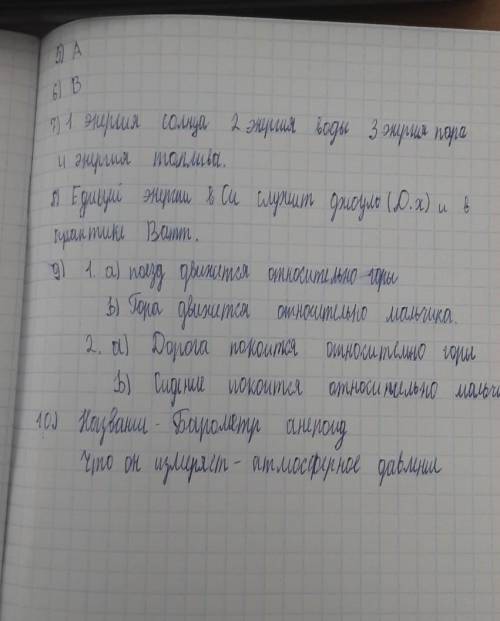 5) А
6) В
7) 1 энергия солнца 2 энергия воды 3 энергия пара
4 энергия топлива.
8) Едицуй энергии в Си служит джоуль (Д.х) и в
практике Ватт.
9) 1. а) поезд движется относительно горы
b) Гора движется относительно мальчика.
2. а) Дорога покоится относительно горы
b) Сидение покоится относительно мальч
10) Названии - Барометр анероид
Что он измеряет - атмосферное давлении